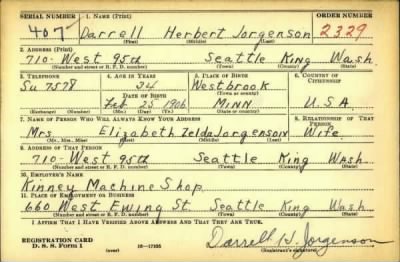 SERIAL NUMBER 1. NAME (Print) ORDER NUMBER
407 Darrell Herbert Jorgenson 2329
(First) (Middle) (Last)
2. ADDRESS (Print)
710- West 95th Seattle King Wash.
(Number and street or R. F. D. number) (Town) (County) (State)
3. TELEPHONE 4. AGE IN YEARS 5. PLACE OF BIRTH 6. COUNTRY OF CITIZENSHIP
Su 7578 34 Westbrook
DATE OF BIRTH (Town or county)
Feb 25 1906 Minn U.S.A.
(Exchange) (Number) (Mo.) (Day) (Yr.) (State or country)
7. NAME OF PERSON WHO WILL ALWAYS KNOW YOUR ADDRESS 8. RELATIONSHIP OF THAT PERSON
Mrs Elizabeth Zelda Jorgenson Wife
(Mr., Mrs., Miss) (First) (Middle) (Last)
9. ADDRESS OF THAT PERSON
710-West 95th Seattle King Wash
(Number and street or R. F. D. number) (Town) (County) (State)
10. EMPLOYER'S NAME
Kinney Machine Shop
11. PLACE OF EMPLOYMENT OR BUSINESS
660 West Ewing St. Seattle King Wash
(Number and street or R. F. D. number) (Town) (County) (State)
I AFFIRM THAT I HAVE VERIFIED ABOVE ANSWERS AND THAT THEY ARE TRUE.
REGISTRATION CARD
D. S. S. Form 1 16—17105 Darrell H. Jorgenson
(Registrant's signature)